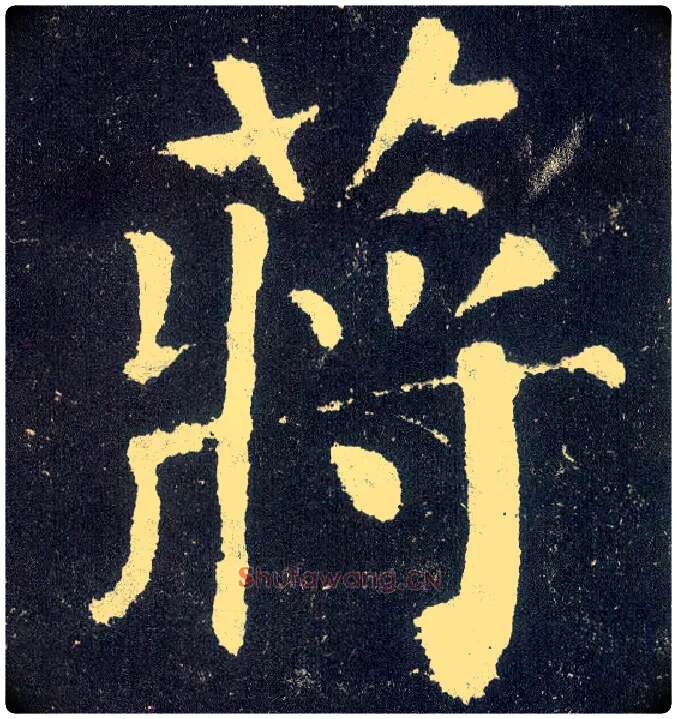 蔣
Shufawang.CN